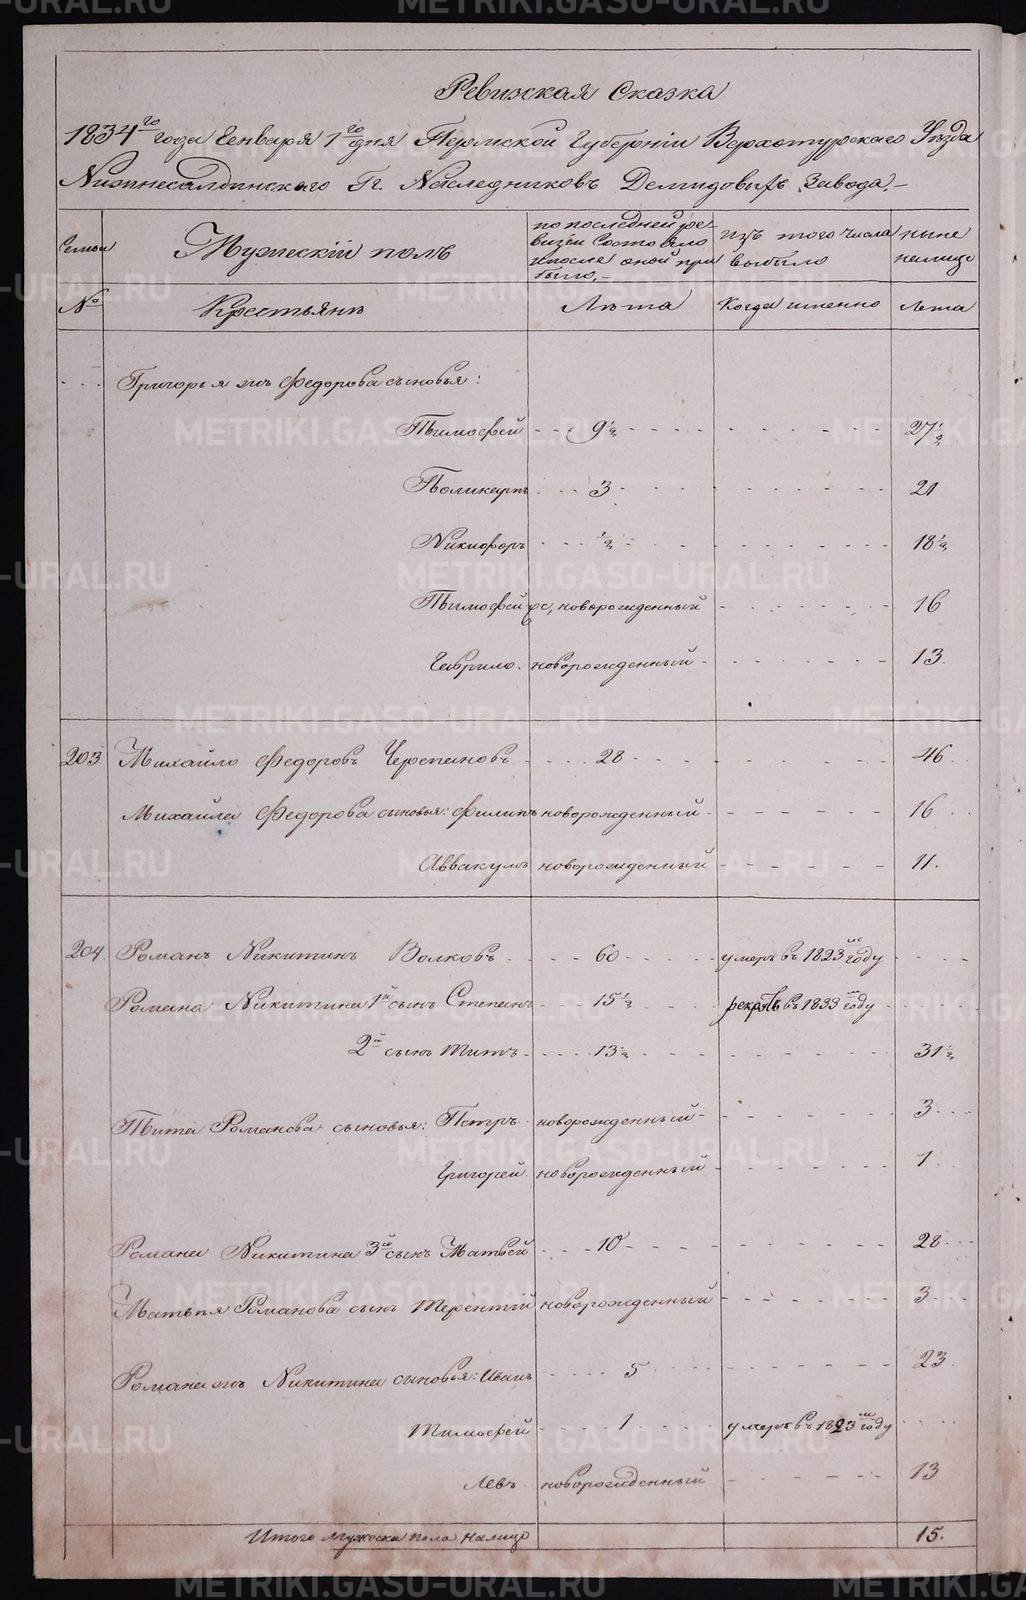 METRIKI.GASO-URAL.RU
Ревижская Сказка
1834го года Генваря 1го дня Пермской Губернiи Верхотурскаго Уѣзда
Нижнесалдинскаго Гг. Наследниковъ Демидовыхъ Завода.
Семьи
Мужескiй полъ
по последней ре-
визiи Состояло
и после оной при
было,
Изъ того числа
выбыло
ныне
налицо
№
Крестьянъ
Лѣта
Когда именно
Лета
Григорья жъ Федорова сыновья:
Тимофей 9½ 27½
Поликарпъ 3 21
Никифоръ ½ 18½
Тимофей же, новорожденный 16
Гаврило новорожденный 13.
203 Михайло Федоровъ Черепановъ 28 46
Михайла Федорова сыновья: Филипъ новорожденный 16
Аввакумъ новорожденный 11.
204. Романъ Никитинъ Волковъ 60 умеръ въ 1823м году
Романа Никитина 1й сынъ Степанъ 15½ въ 1833м году
2й сынъ Титъ 13½ 31½
Тита Романова сыновья: Петръ новорожденный 3
Григорей новорожденный 1
Романа Никитина 3й сынъ Матвей 10 28
Матвея Романова сынъ Терентiй новорожденный 3
Романа жъ Никитина сыновья: Иванъ 5 23
Тимофей 1 умеръ въ 1823м году
Левъ новорожденный 13
Итого мужеска пола налицо 15.